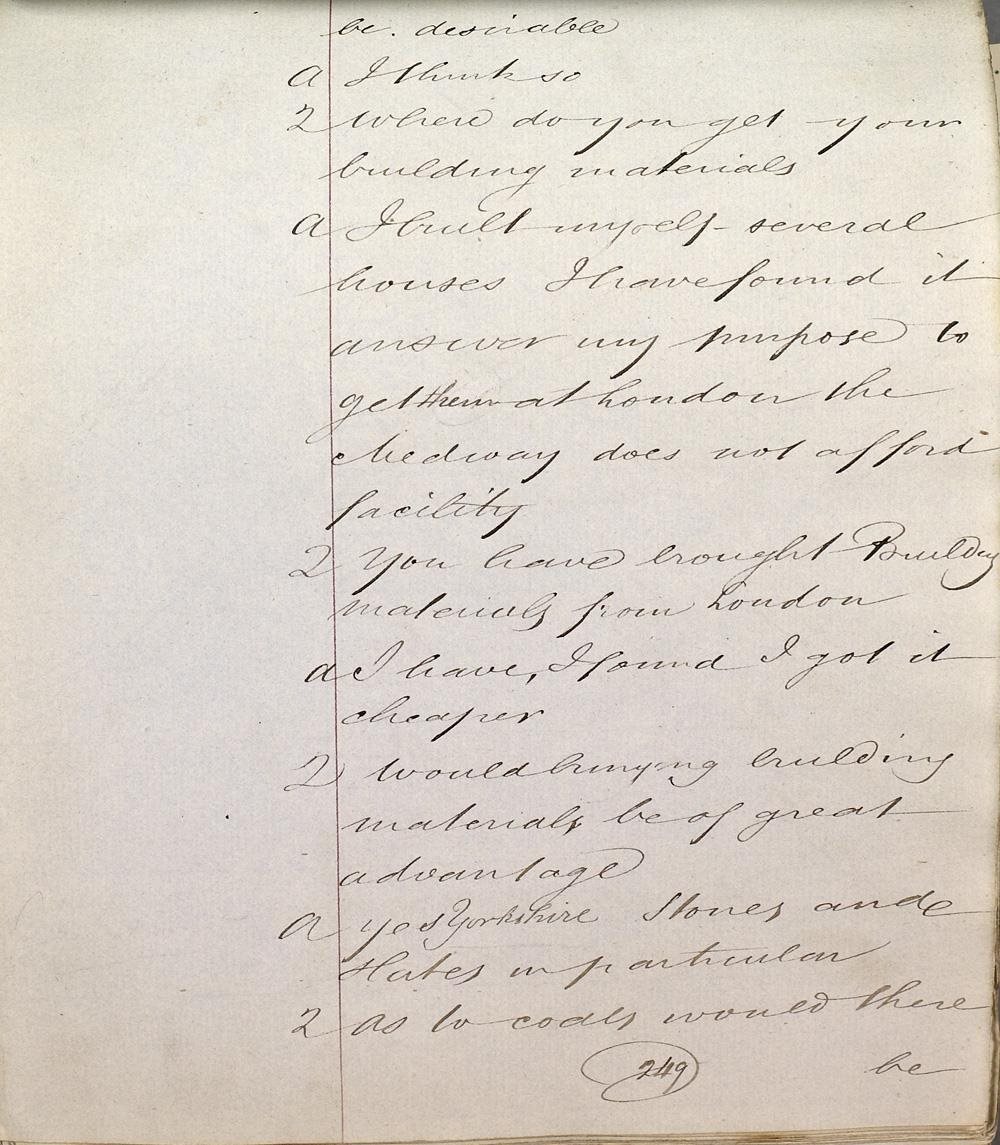 be. desirable
A I think so
Q Where do you get your
building materials
A I built myself several
houses I have found it
answer my purpose to
get them at London the
Medway does not afford
facility
Q You have brought Building
materials from London
A I have, I found I got it
cheaper
Q Would bringing building
materials be of great
advantage
A yes Yorkshire Stones and
Slates in particular
Q as to coals would there
249 be